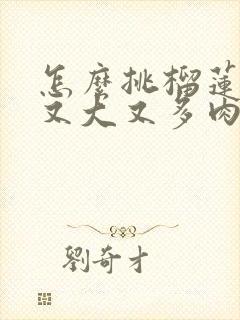 怎麼挑榴蓮
又大又多肉
劉奇才